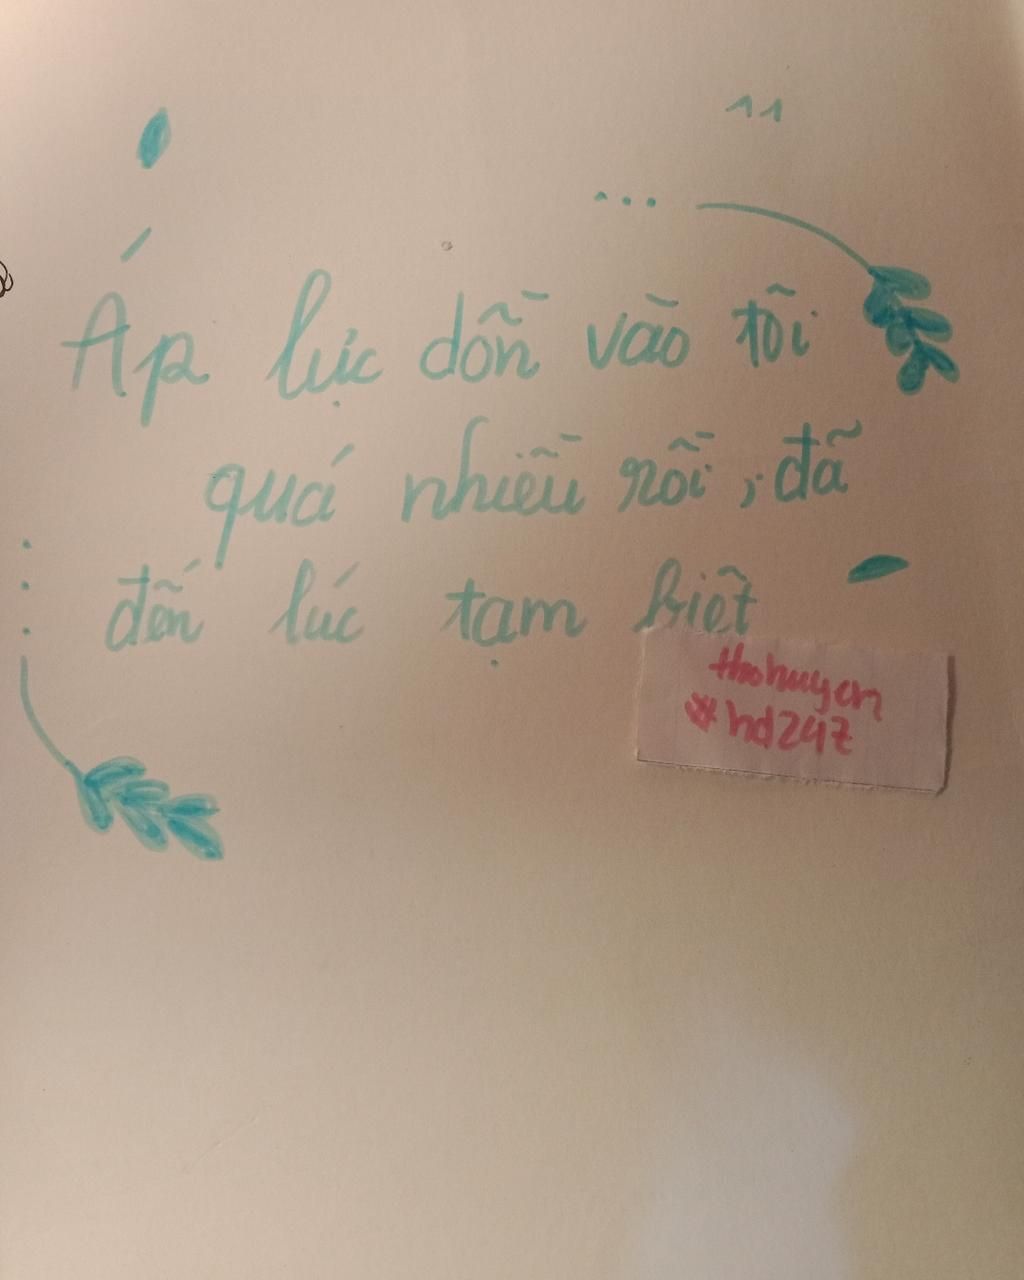 Áp lực dồn vào tôi
quá nhiều rồi, đã
đến lúc tạm biệt
thohuyen
#hd247